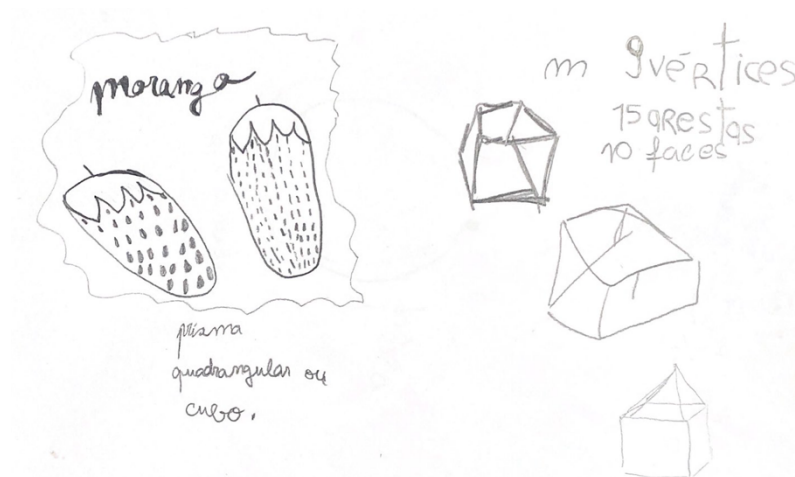 morango
prisma
quadrangular ou
cubo.
m 9 vértices
15 arestas
10 faces